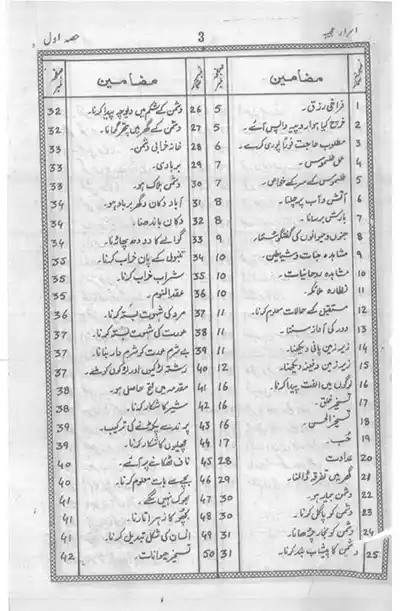 اسرار عجیبہ 3 حصہ اول
نمبر شمار مضامین صفحہ نمبر
1 فراخی رزق۔ 5
2 خرچ کیا ہوا روپیہ واپس آئے۔ 5
3 مطلوب حاجت فوراً پوری کرے۔ 6
4 عمل طلسموسس۔ 7
5 طلسموسس کے سرکے خواص۔ 7
6 آتش و آب پر چلنا۔ 7
7 بارش برسانا۔ 8
8 جنوں و حیوانوں کی گفتگو سننا۔ 8
9 مشاہدہ جنات و شیاطین۔ 9
10 مشاہدہ روحانیات۔ 10
11 نظارہ ملائکہ۔ 10
12 مستقبل کے حالات معلوم کرنا۔ 10
13 دور کی آواز سننا۔ 11
14 زیر زمین پانی دیکھنا۔ 11
15 زیر زمین دفینہ دیکھنا۔ 11
16 لوگوں میں الفت پیدا کرنا۔ 12
17 تسخیر خلق۔ 16
18 تسخیر الجن۔ 16
19 حب۔ 16
20 عداوت 17
21 گھر میں تفرقہ ڈالنا۔ 28
22 دشمن بیمار ہو۔ 29
23 دشمن کو پاگل کرنا۔ 30
24 دشمن کو بخار چڑھانا۔ 30
25 دشمن کا پیشاب بند کرنا۔ 31
نمبر شمار مضامین صفحہ نمبر
26 دشمن کے شکم میں دیوچہ پیدا کرنا۔ 32
27 دشمن کے گھر میں پتھر گرانا۔ 32
28 خانہ خرابی دشمن۔ 33
29 بربادی۔ 33
30 دشمن ہلاک ہو۔ 33
31 آباد دکان و گھر برباد ہو۔ 34
32 دکان باندھنا۔ 34
33 گوالے کا دودھ پھاڑنا۔ 34
34 تنبولی کے پان خراب کرنا۔ 35
35 شراب خراب کرنا۔ 35
36 عقد النوم۔ 35
37 مرد کی شہوت بستہ کرنا۔ 36
38 عورت کی شہوت بستہ کرنا۔ 37
39 بے شرم عورت کو شرم دار بنانا۔ 37
40 رشتہ لڑکیوں اور لڑکوں کو ملے۔ 37
41 مقدمہ میں فتح حاصل ہو۔ 38
42 شیر کا شکار کرنا۔ 38
43 پرندے پکڑنے کی ترکیب۔ 39
44 مچھلیوں کا شکار کرنا۔ 39
45 ناف ٹھکانے پر آئے۔ 40
46 بچے سے بات معلوم کرنا۔ 40
47 بھوک نہیں لگے۔ 41
48 بچھو کا زہر اتارنا۔ 41
49 انسان کی شکل تبدیل کرنا۔ 41
50 تسخیر حیوانات۔ 42
31